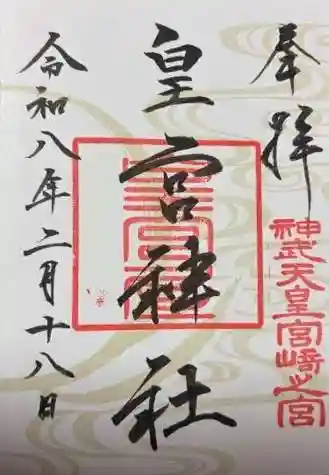 奉拝
神武天皇宮崎之宮
皇宮神社
令和八年二月十八日